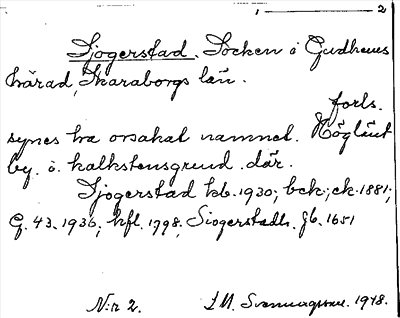 1 — 2
Sjogerstad. Socken i Gudhems
härad, Skaraborgs län.
forts.
synes ha orsakat namnet. Högländ
by. å kalkstensgrund. där.
Sjogerstad kb. 1930; bck; ck. 1881;
G. 43. 1936; hfl. 1798, Siogerstadh. Jb. 1651
N:r 2. 1948.